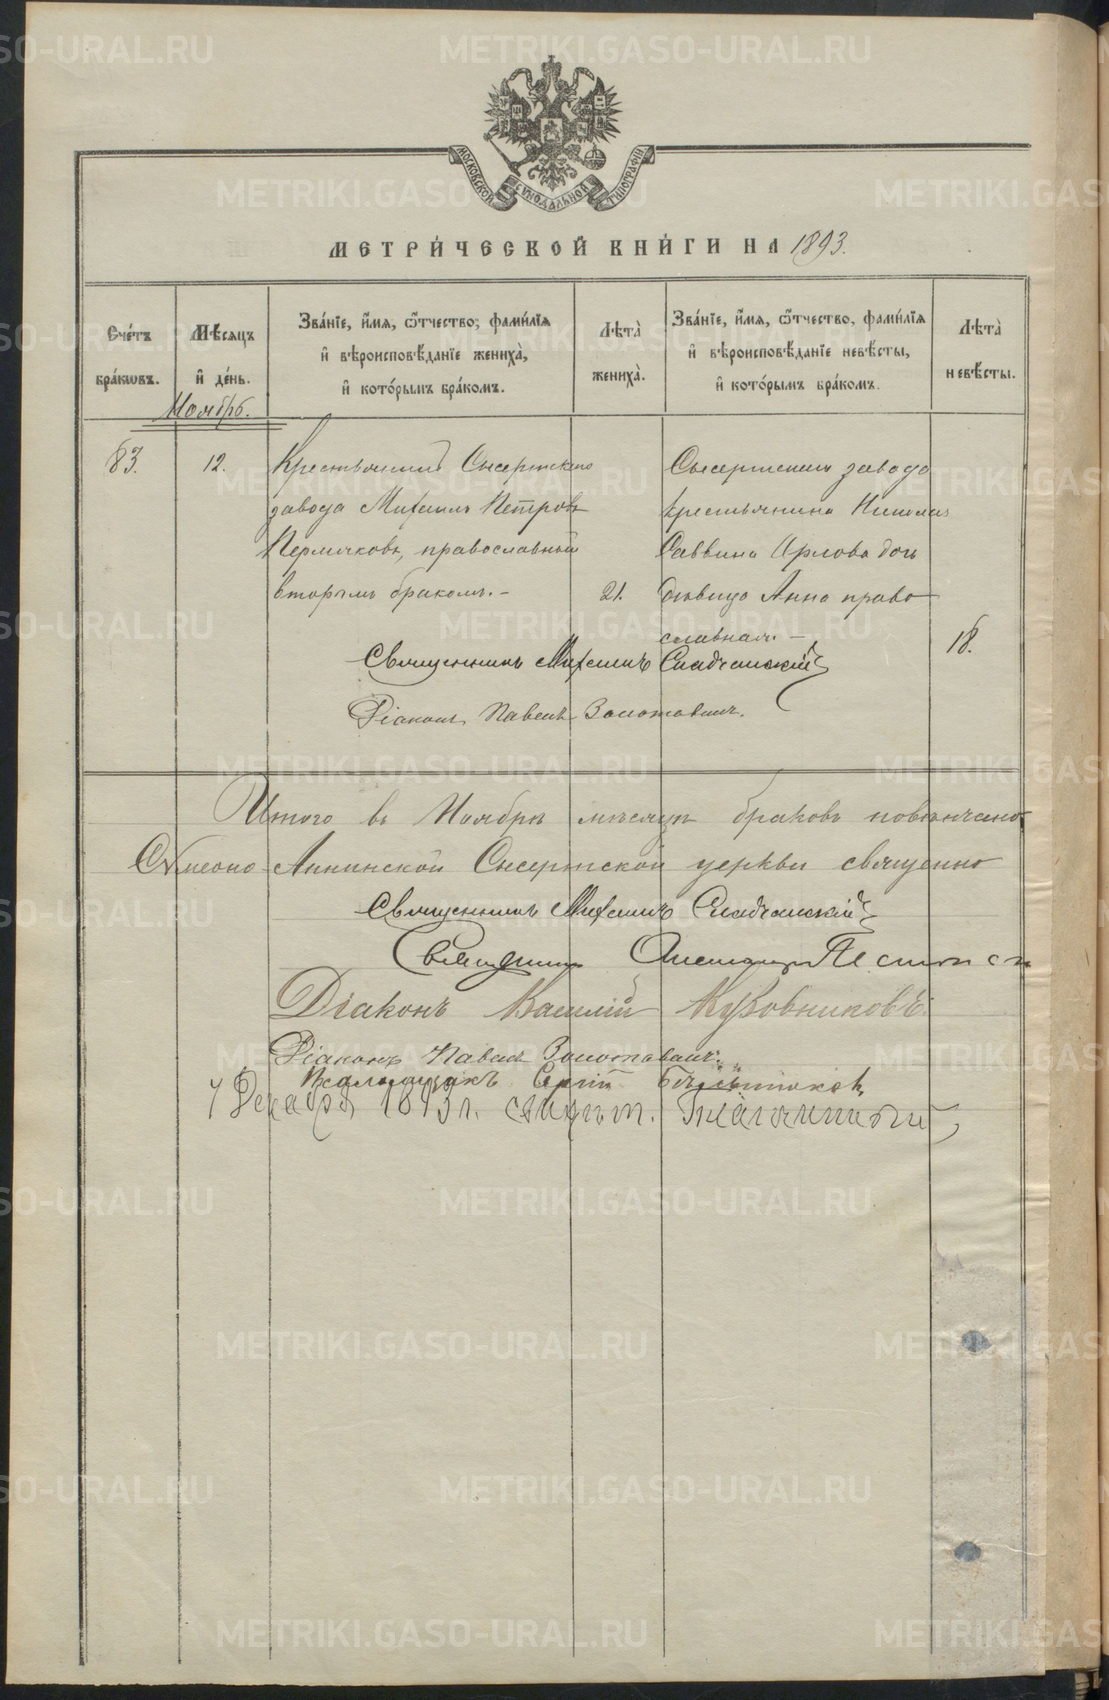 МОСКОВСКОЙ СѴНОДАЛЬНОЙ ТИПОГРАФІИ
МЕТРИ́ЧЕСКОЙ КНИ́ГИ НА 1893.
Сче́тъ бра́кѡвъ.
Мѣ́сяцъ и҆ де́нь.
Зва́нїе, и҆́мя, ѻ҆́тчество, фами́лїя и҆ вѣроисповѣ́данїе жениха̀, и҆ кото́рымъ бра́комъ.
Лѣ́та̀ жениха̀.
Зва́нїе, и҆́мя, ѻ҆́тчество, фами́лїя и҆ вѣроисповѣ́данїе невѣ́сты, и҆ кото́рымъ бра́комъ.
Лѣ́та̀ невѣ́сты.
Ноябрь.
83.
12.
Крестьянинъ Сысертскаго
завода Михаилъ Петровъ
Пермяковъ, православный
вторымъ бракомъ.-
21.
Сысертскаго завода
крестьянина Николая
Саввина Орлова дочь
дѣвица Анна право
славная. -
18.
Священникъ Михаилъ
Діаконъ Павелъ Золотавинъ.
Итого въ Ноябрѣ мѣсяцѣ браковъ повѣнчано
Сѵмеоно-Аннинской Сысертской церкви священно
Священникъ Михаилъ
Священникъ Александръ
Діаконъ Василій Кузовниковъ.
Діаконъ Павелъ Золотавинъ.
Псаломщикъ Сергій
7 Декабря 1893 г.
METRIKI.GASO-URAL.RU